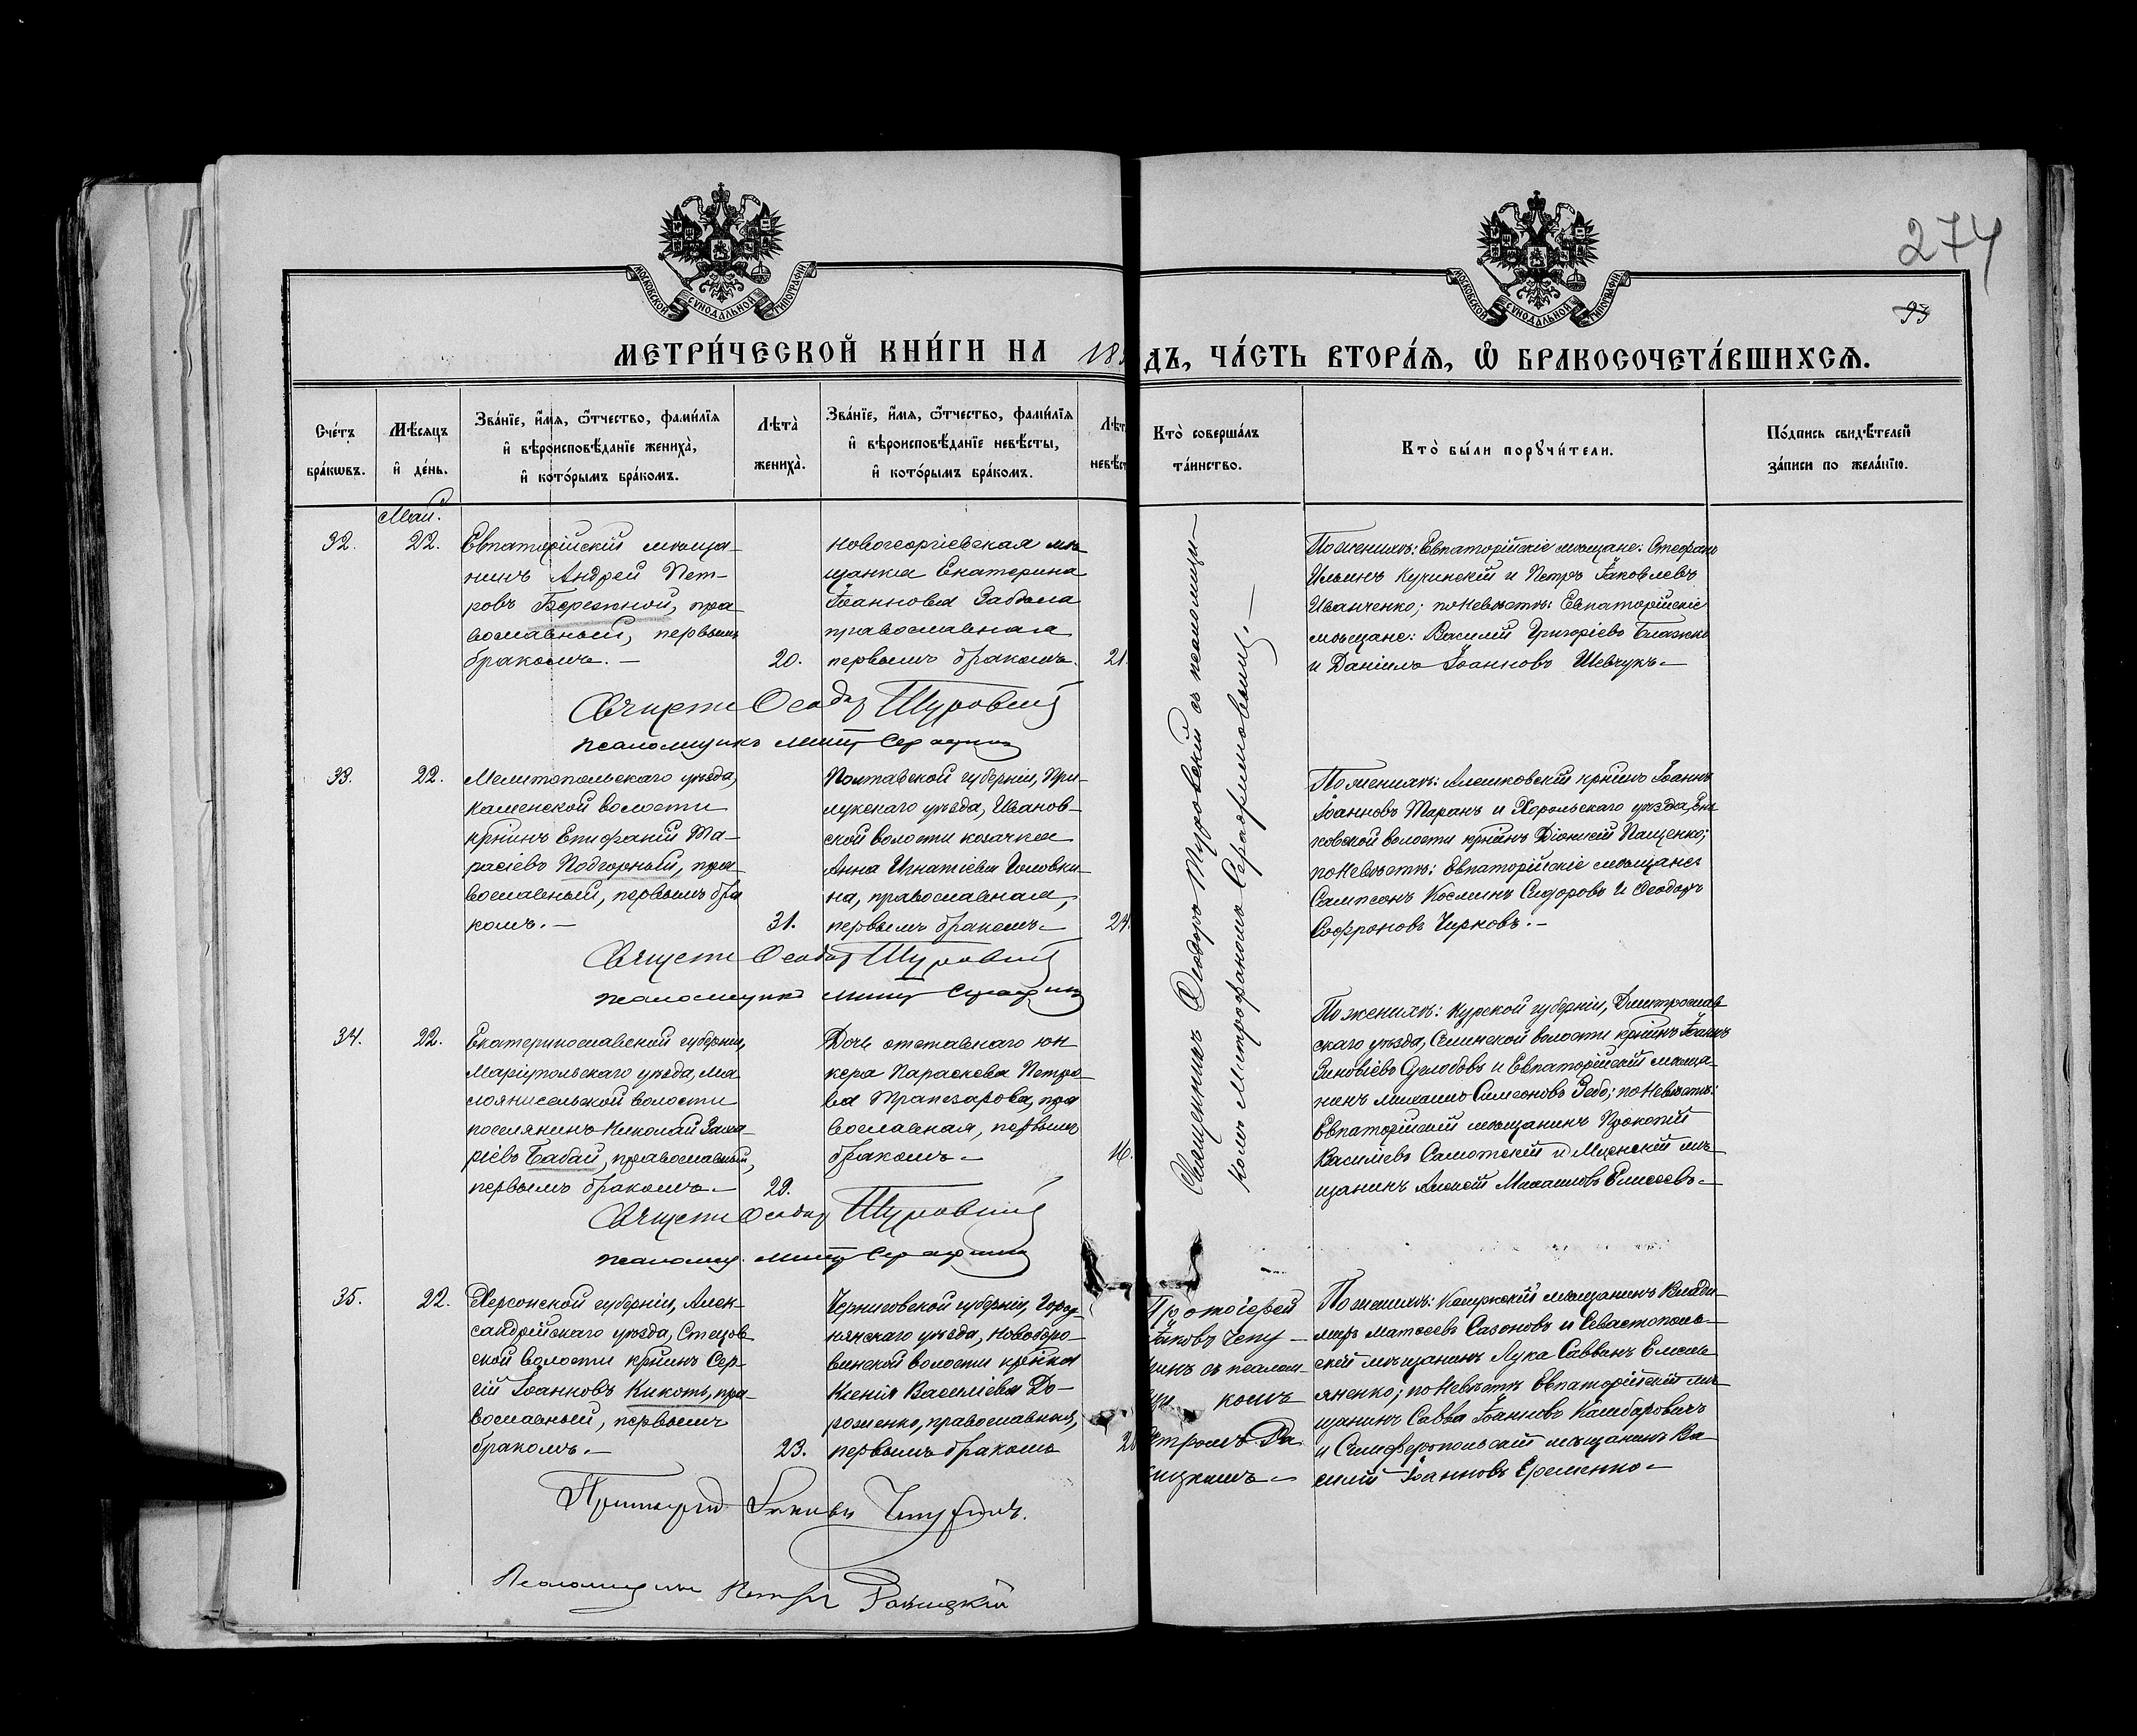 274
93
МОСКОВСКОЙ СУНОДАЛЬНОЙ ТИПОГРАФІИ
МОСКОВСКОЙ СУНОДАЛЬНОЙ ТИПОГРАФІИ
МЕТРИ́ЧЕСКОЙ КНИ́ГИ НА 18
ДЪ, ЧА́СТЬ ВТОРА́Ѧ, Ѡ҆ БРАКОСОЧЕТА́ВШИХСѦ.
Сче́тъ
бра́кѡвъ.
Мѣ́сѧцъ
и҆ де́нь.
Зва́нїе, и҆́мѧ, ѻ҆́тчество, фами́лїѧ
и҆ вѣроисповѣ́данїе жениха̀,
и҆ кото́рымъ бра́комъ.
Лѣта̀
жениха̀.
Зва́нїе, и҆́мѧ, ѻ҆́тчество, фами́лїѧ
и҆ вѣроисповѣ́данїе невѣ́сты,
и҆ кото́рымъ бра́комъ.
Лѣт
невѣст
Кто̀ соверша́лъ
та́инство.
Кто̀ бы́ли порꙋчи́тели.
По́дпись свидѣ́телей
за́писи по жела́нїю.
Май.
32.
22.
Евпаторійскій мѣща-
нинъ Андрей Пет-
ровъ Бережной, пра-
вославный, первымъ
бракомъ.—
20.
Новогеоргіевская мѣ-
щанка Екатерина
Іоаннова
православная
первымъ бракомъ.
21.
Священникъ Ѳеодоръ Туровскій съ псаломщи-
комъ Митрофаномъ Серафимовымъ.—
По женихѣ: Евпаторійскіе мѣщане: Стефанъ
Ильинъ Кучинскій и Петръ Іаковлевъ
Иванченко; по невѣстѣ: Евпаторійскіе
мѣщане: Василій Григоріевъ Блажко
и Даніилъ Іоанновъ Шевчукъ.—
Священ Ѳеодоръ Туровскій
псаломщикъ Мит Серафимовъ
33.
22.
Мелитопольскаго уѣзда,
Каменской волости
кр̃нинъ Епифаній Та-
расіевъ Подгорный, пра-
вославный, первымъ бра
комъ.—
31.
Полтавской губерніи, При-
лукскаго уѣзда, Иванов-
ской волости козачка
Анна Игнатіева Головки-
на, православная,
первымъ бракомъ.—
24.
По женихѣ: Алешковскій кр̃нинъ Іоаннъ
Іоанновъ Таранъ и Хорольскаго уѣзда,
ковской волости кр̃нинъ Діонисій Пащенко;
по невѣстѣ: Евпаторійскіе мѣщане:
Сампсонъ Косминъ Сидоровъ и Ѳеодоръ
Софроновъ Чирковъ.—
Священ Ѳеодоръ Туровскій
псаломщикъ Мит Серафимовъ
34.
22.
Екатеринославской губерніи,
Маріупольскаго уѣзда, Ма
лоянисельской волости
поселянинъ Николай Заха-
ріевъ Бабай, православный,
первымъ бракомъ.—
29.
Дочь отставнаго юн
кера Параскева Петро-
ва Трапезарова, пра
вославная, первымъ
бракомъ.—
16.
По женихѣ: Курской губерніи, Дмитрослав
скаго уѣзда, волости кр̃нинъ Іоаннъ
Зиновіевъ и Евпаторійскій мѣща-
нинъ Михаилъ Симеоновъ; по невѣстѣ:
Евпаторійскій мѣщанинъ Прокопій
Василіевъ и мѣ-
щанинъ Алексій Михаиловъ Елисеевъ.—
Священ Ѳеодоръ Туровскій
псаломщ. Мит Серафимовъ
35.
22.
Херсонской губерніи, Алек-
сандрійскаго уѣзда, Стецов-
ской волости кр̃нинъ Сер-
гій Іоанновъ Кикоть, пра-
вославный, первымъ
бракомъ.—
23.
Черниговской губерніи, Город-
нянскаго уѣзда, Новоборо-
вицкой волости кр̃нка
Ксенія Василіева До-
роженко, православная,
первымъ бракомъ
2
Протоіерей
Іаковъ Чепу-
ринъ съ псалом-
щи комъ
етромъ Ра
ицкимъ.—
По женихѣ: мѣщанинъ Влади-
миръ Матѳеевъ Сазоновъ и Севастополь-
скій мѣщанинъ Лука Саввинъ Емель
яненко; по невѣстѣ Евпаторійскій мѣ-
щанинъ Савва Іоанновъ Камбаровичъ
и Симферопольскій мѣщанинъ Ва-
силій Іоанновъ Еременко.—
Протоіерей Іаковъ Чепуринъ.
Псаломщикъ Петръ